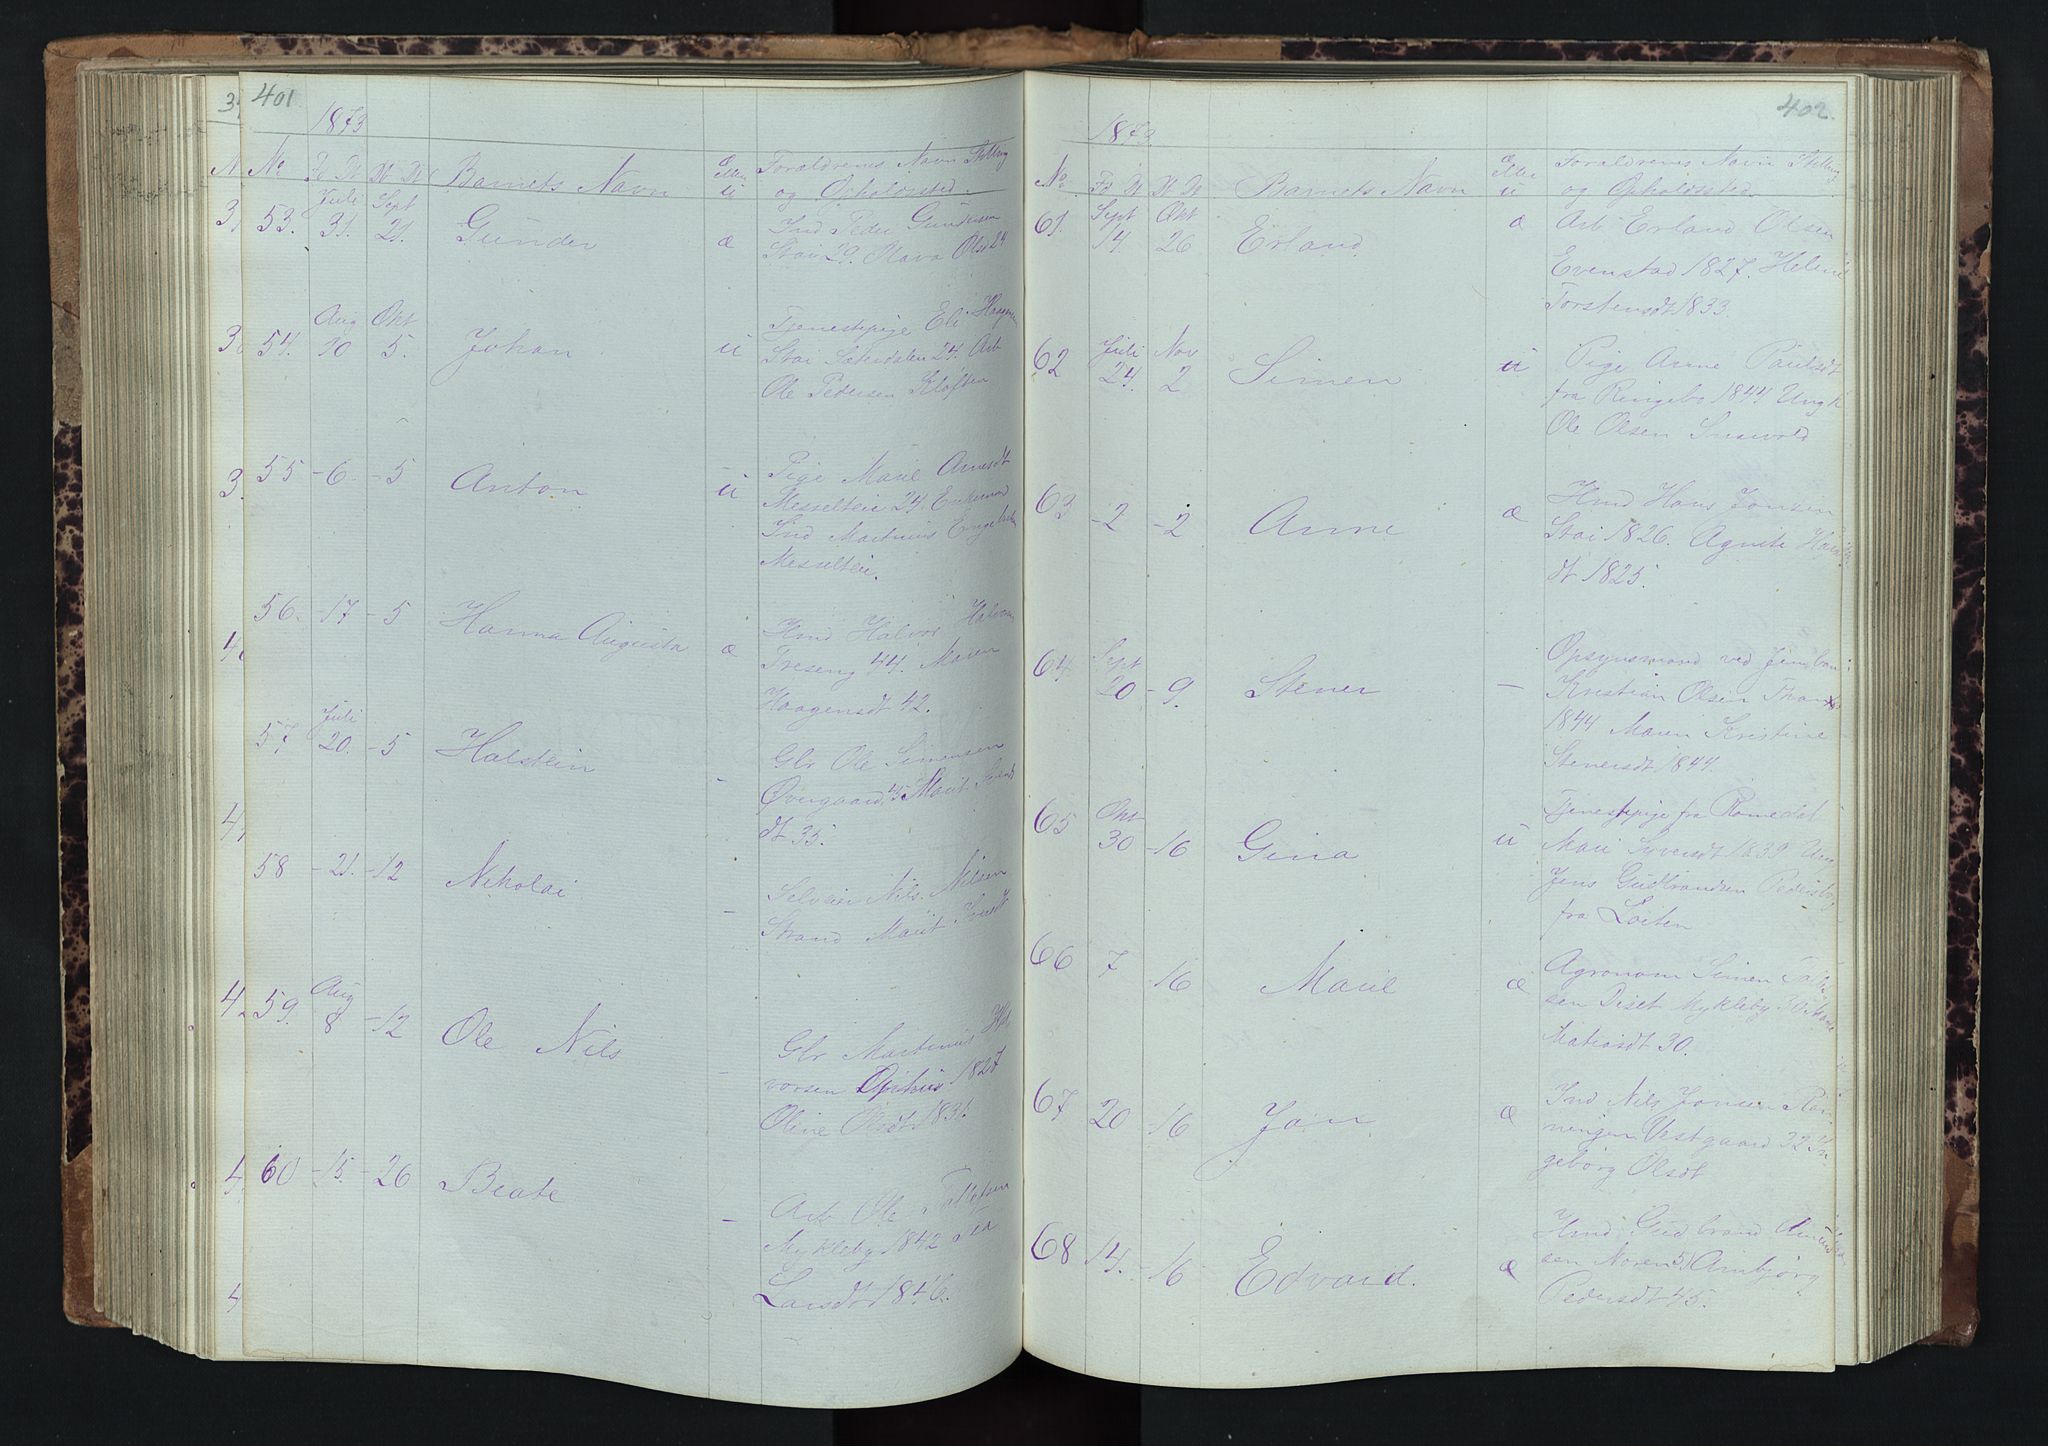 401
1873
No Fd Dt Dt Dt Barnets Navn Æ eller u Foraldrenes Navn Stilling og Opholdssted.
53. Juli 31. Sept 21. Gunder æ Ind Peder
Stai 29. Olava Olsd 24
54. Aug 10 Okt 5. Johan u Tjenestepige Eli Haagens
Stai Sæterdalen 24. Arb
Ole Pedersen Kløften
55 -6. -5 Anton u Pige Marie Arnesdt
Messeltlie 24. Enkemand
Ind Martinus Engebretsen
Messeltlie.
56. -17 -5 Hanna Augusta æ Hmd Halvor Halvorsen
Treseng 44. Maren
Haagensdt 42.
57. Juli 20. -5 Halstein - Gbr Ole Simensen
Øvergaard 45 Marit
dt 35.
58 -21. -12 Nikolai - Selveier Nils Nilsen
Strand Marit
59. Aug 8 -12 Ole Nils - Gbr Martinus Hal
vorsen Opphus 1827
Oline Olsdt 1831.
60 -15. -26 Beate - Arb Ole Tollefsen
Mykleby 1842
Larsdt 1846.
402.
1873
No Fd Dt Dt Dt Barnets Navn Æ eller u Foraldrenes Navn Stilling og Opholdssted
61. Sept 14. Okt 26 Erland æ Arb Erland Olsen
Evenstad 1827. Helene
Torstensdt 1833.
62 Juli 24. Nov 2 Simen u Pige Anne Paulsdt
fra Ringebo 1844 Ungk
Ole Olsen
63 -2 -2 Anne æ Hmd Hans Jonsen
Stai 1826. Agnete
dt 1825.
64. Sept 20 -9. Stener - Opsynsmand ved Jernban
Kristian Olsen
1844 Maren Kristine
Stenersdt 1844.
65 Okt 30 -16 Gina u Tjenestepige fra Romedal
Mari Iversdt 1839 Ung
Jens Gudbrandsen
fra Løiten
66 7 -16 Marie æ Agronom Simen
sen Diset Mykleby 30
Matiasdt 30.
67 20 -16 Jon æ Ind Nils Jonsen Røn
ningen Vestgaard 32 In
geborg Olsdt
68 14. -16 Edvard. æ Hmd Gudbrand Amund
sen Noren 51 Arnbjørg
Pedersdt 45.